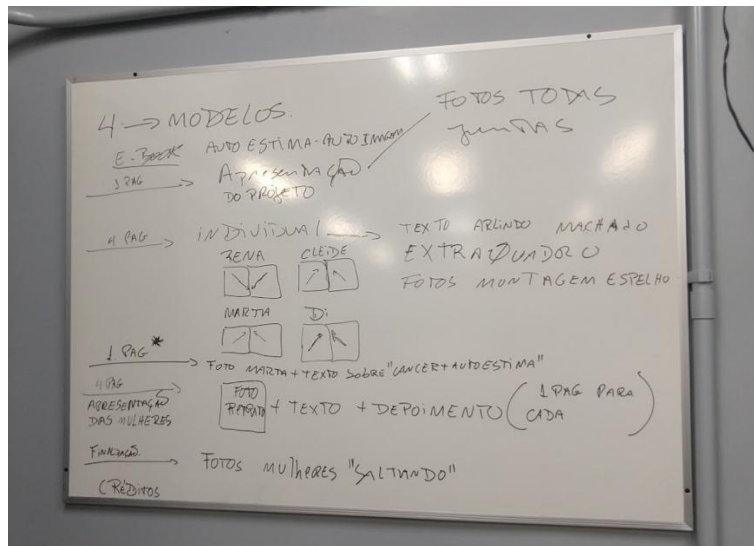 4 → MODELOS.
FOTOS TODAS
JUNTAS
E-BOOK AUTO ESTIMA - AUTO IMAGEM
1 PAG → APresentAÇÃO
DO PROJETO
4 PAG → iNDiViDUAL → TEXTO ARLINDO MACHADO
EXTRAQUADRO
FOTOS MONTAGEM ESPELHO
CLEIDE
MARTA Di
1. PAG * → FOTO MARTA + TEXTO SOBRE "CANCER + AUTOESTIMA"
4 PAG
APRESENTAÇÃO
DAS MULHERES
FOTO
RETRATO + TEXTO + DEPOIMENTO (1 PAG PARA
CADA)
FINALIZAÇÃO → FOTOS MULHERES "SALTANDO"
CRÉDITOS